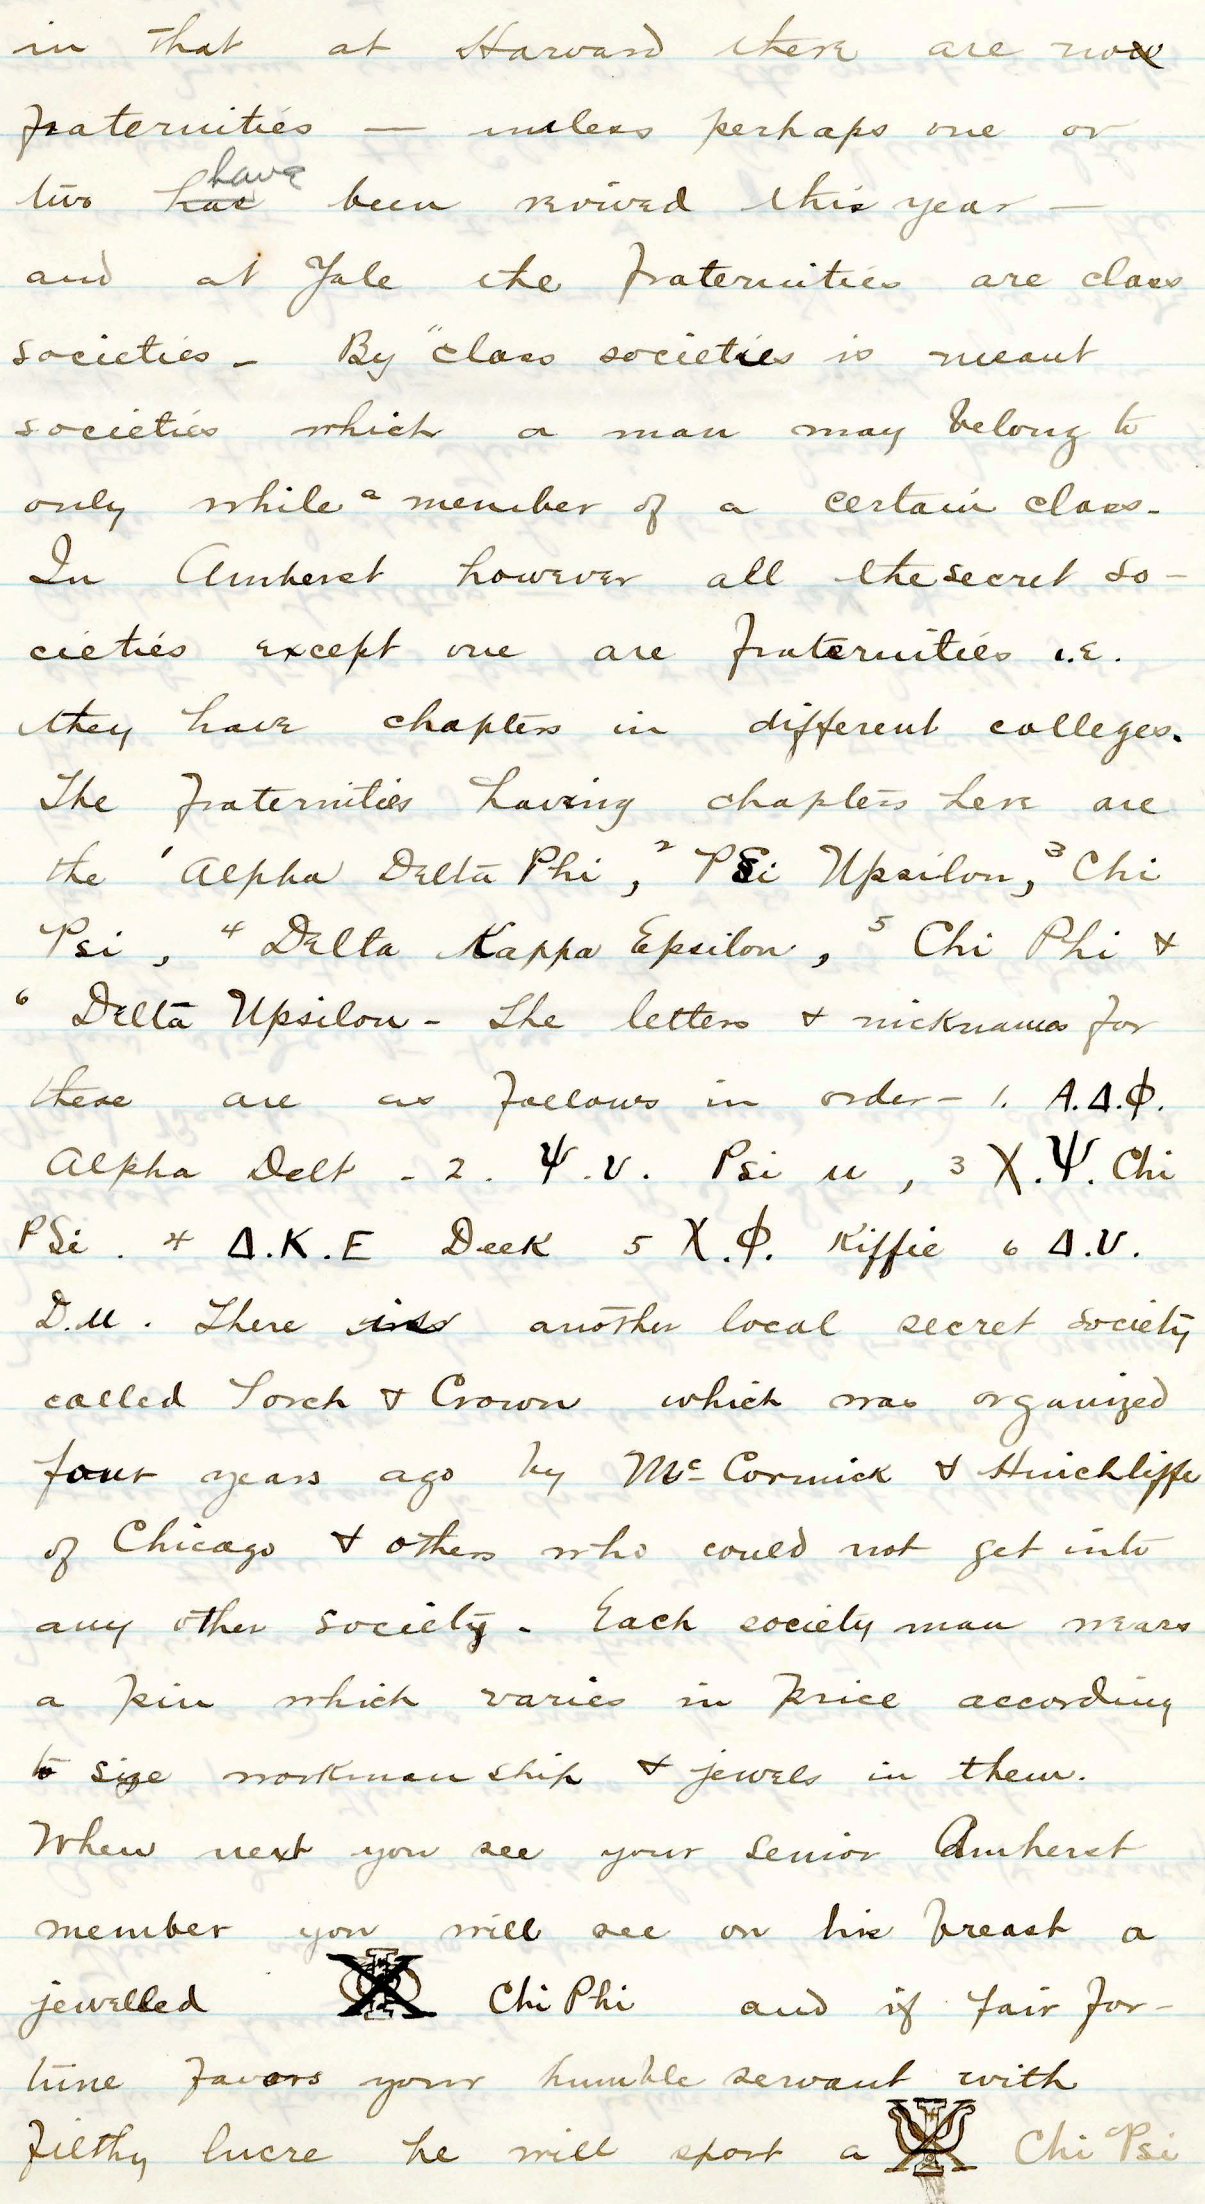 in that at Harvard there are now
fraternities — unless perhaps one or
two has have been revived this year —
and at Yale the fraternities are class
societies - By "class societies is meant
societies which a man may belong to
only while a member of a certain class -
In Amherst however all the secret so-
cieties except one are fraternities i.e.
they have chapters in different colleges.
The fraternities having chapters here are
the 1 Alpha Delta Phi, 2 Psi Upsilon, 3 Chi
Psi, 4 Delta Kappa Epsilon, 5 Chi Phi &
6 Delta Upsilon - The letters & nicknames for
these are as follows in order - 1. Α.Δ.Φ.
Alpha Delt - 2. Ψ.υ. Psi u, 3 Χ.Ψ. Chi
PSi. 4 Δ.Κ.Ε Deek 5 Χ.Φ. Kiffie 6 Δ.υ.
D.U. There is another local secret society
called Torch & Crown which was organized
four years ago by McCormick & Hinchliffe
of Chicago & others who could not get into
any other society - Each society man wears
a pin which varies in price according
to size workmanship & jewels in them.
When next you see your senior Amherst
member you will see on his breast a
jewelled ΧΦ Chi Phi and if fair for-
tune favors your humble servant with
filthy lucre he will sport a ΧΨ Chi Psi